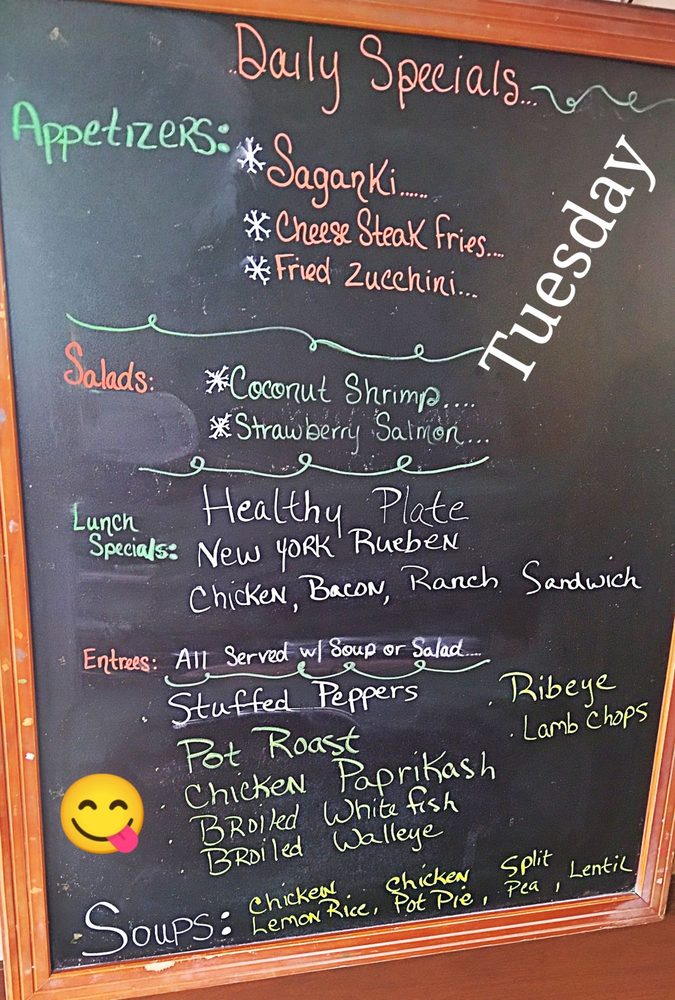 ..Daily Specials...
Appetizers:
*Saganki......
*Cheese Steak Fries....
*Fried Zucchini...
Tuesday
Salads:
*Coconut Shrimp....
*Strawberry Salmon...
Lunch Specials:
Healthy Plate
New York Rueben
Chicken, Bacon, Ranch Sandwich
Entrees: All Served w/ Soup or Salad....
Stuffed Peppers
Pot Roast
. Chicken Paprikash
. Broiled White fish
. Broiled Walleye
. Ribeye
. Lamb Chops
Soups: Chicken Lemon Rice, Chicken Pot Pie, Split Pea, Lentil